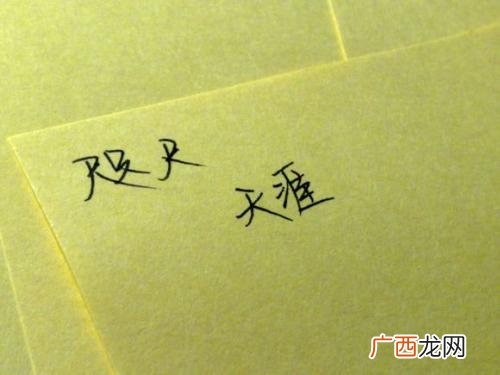 咫尺
天涯
广西龙网